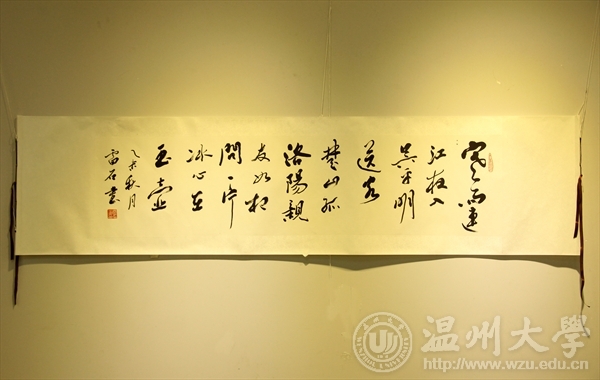 寒雨連
江夜入
吳平明
送客
楚山孤
洛陽親
友如相
問一片
冰心在
玉壺
乙未秋月
雷石書
温州大學
http://www.wzu.edu.cn